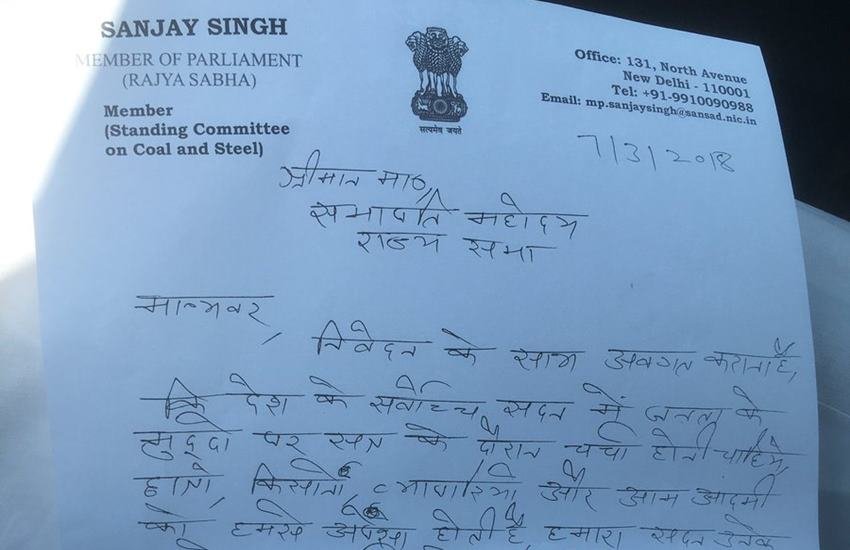 SANJAY SINGH
MEMBER OF PARLIAMENT
(RAJYA SABHA)
Member
(Standing Committee
on Coal and Steel)
सत्यमेव जयते
Office: 131, North Avenue
New Delhi - 110001
Tel: +91-9910090988
Email: mp.sanjaysingh@sansad.nic.in
7/3/2018
श्रीमान मा०,
सभापति महोदय
राज्य सभा
मान्यवर,
निवेदन के साथ अवगत कराना है,
कि देश के सर्वोच्च सदन में जनता के
मुद्दो पर सत्र के दौरान चर्चा होनी चाहिये,
छात्रो, किसानों, व्यापारियों और आम आदमी
को हमसे अपेक्षा होती है, हमारा सदन उनके